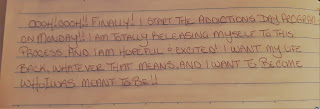 OOOH! OOOH!! FINALLY! I START THE ADDICTIONS DAY PROGRAM
ON MONDAY!! I AM TOTALLY RELEASING MYSELF TO THIS
PROCESS, AND I AM HOPEFUL & EXCITED! I WANT MY LIFE
BACK, WHATEVER THAT MEANS, AND I WANT TO BECOME
WHO I WAS MEANT TO BE!!